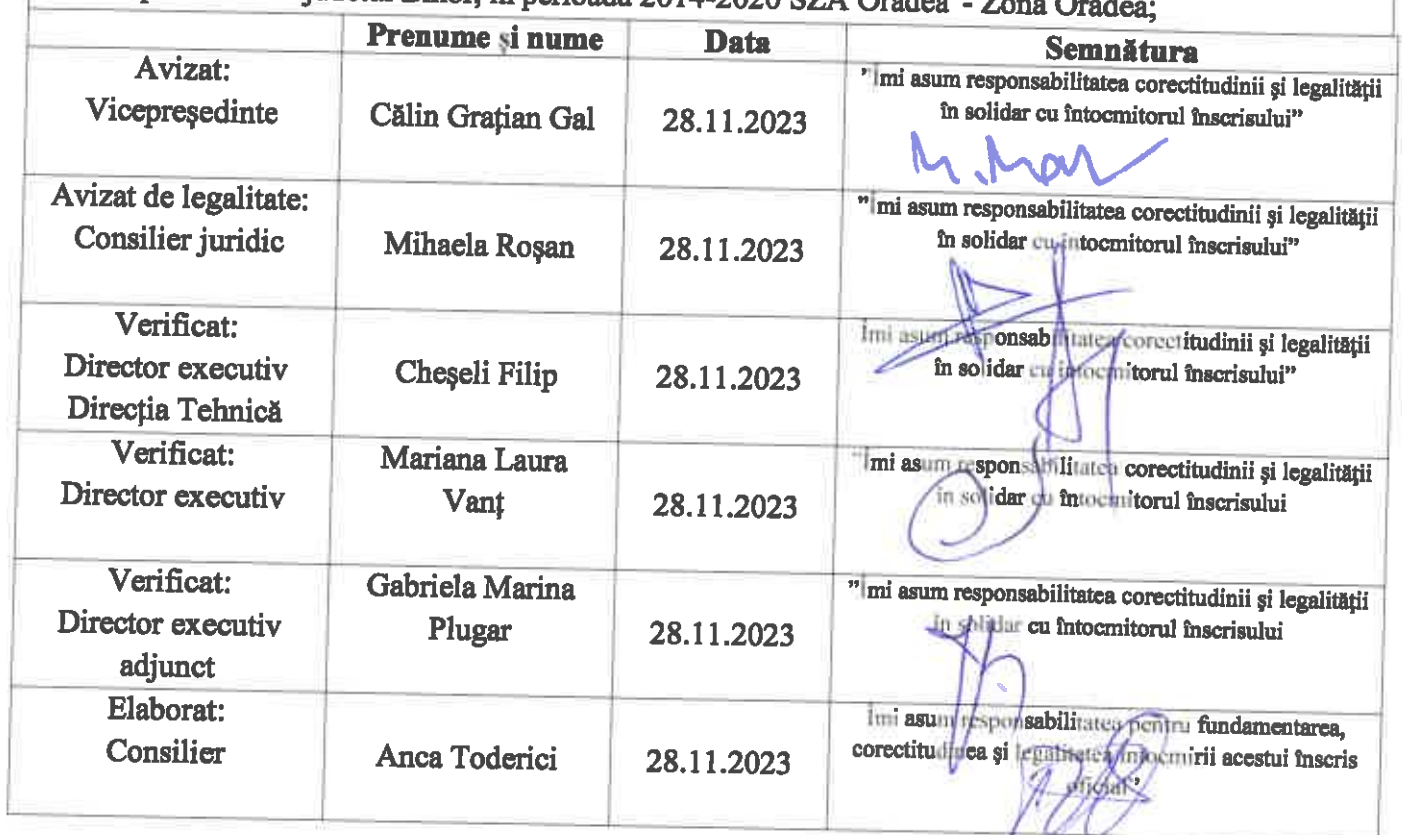 județul Bihor, în perioada 2014-2020 SZA Oradea - Zona Oradea;
Prenume și nume Data Semnătura
Avizat:
Vicepreședinte
Călin Grațian Gal
28.11.2023
"Îmi asum responsabilitatea corectitudinii și legalității
în solidar cu întocmitorul înscrisului"
Avizat de legalitate:
Consilier juridic
Mihaela Roșan
28.11.2023
"Îmi asum responsabilitatea corectitudinii și legalității
în solidar cu întocmitorul înscrisului"
Verificat:
Director executiv
Direcția Tehnică
Cheșeli Filip
28.11.2023
Îmi asum responsabilitatea corectitudinii și legalității
în solidar cu întocmitorul înscrisului"
Verificat:
Director executiv
Mariana Laura
Vanț
28.11.2023
"Îmi asum responsabilitatea corectitudinii și legalității
în solidar cu întocmitorul înscrisului
Verificat:
Director executiv
adjunct
Gabriela Marina
Plugar
28.11.2023
"Îmi asum responsabilitatea corectitudinii și legalității
în solidar cu întocmitorul înscrisului
Elaborat:
Consilier
Anca Toderici
28.11.2023
Îmi asum responsabilitatea pentru fundamentarea,
corectitudinea și legalitatea întocmirii acestui înscris
oficial"